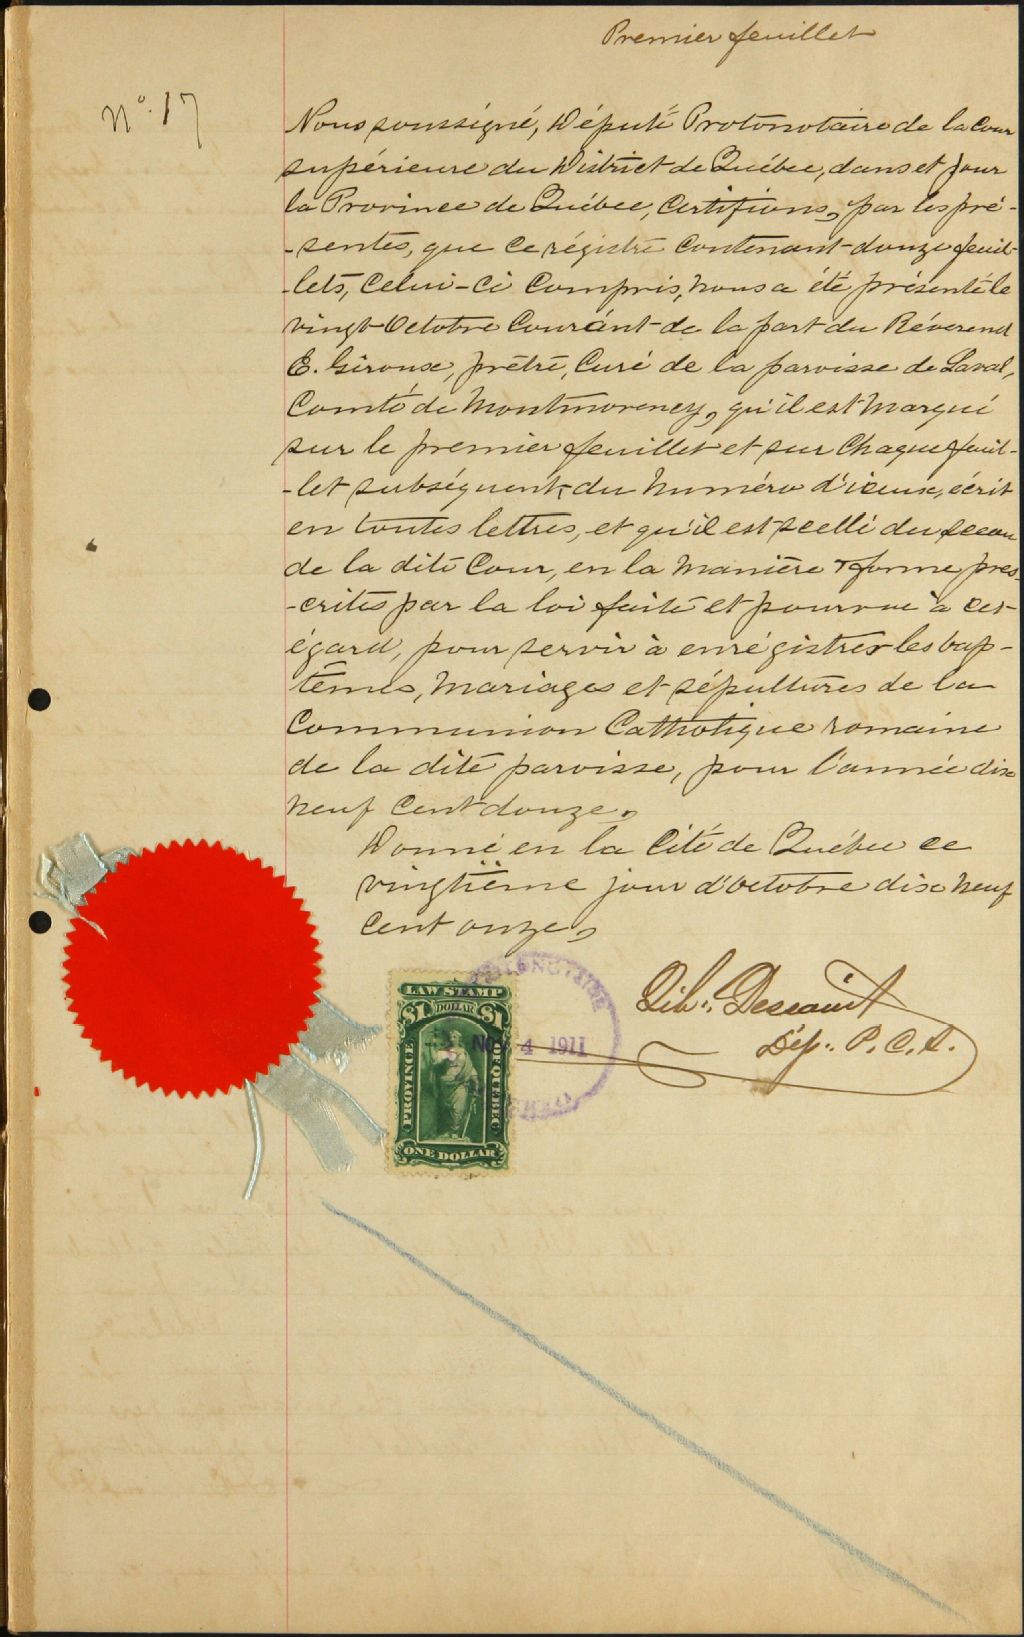 Premier feuillet
No. 17
Nous soussigné, Député Protonotaire de la Cour
supérieure du District de Québec, dans et pour
la Province de Québec, Certifions, par les pré-
-sentes, que ce régistre contenant douze feuil-
-lets, Celui-ci Compris, nous a été présenté le
vingt Octobre Courant de la part du Révérend
E. Giroux, prêtre, Curé de la paroisse de Laval,
Comté de Montmorency, qu'il est Marqué
sur le premier feuillet et sur Chaque feuil-
-let subséquent, du Numéro d'iceux, écrit
en toutes lettres, et qu'il est scellé du sceau
de la dite Cour, en la Manière & forme pres-
-crites par la loi faite et pourvue à cet
égard, pour servir à enrégistrer les bap-
têmes, Mariages et sépultures de la
Communion Catholique romaine
de la dite paroisse, pour l'année dix
neuf Cent douze,
Donné en la Cité de Québec ce
vingtième jour d'Octobre dix neuf
Cent onze,
Dép. P. C. S.
LAW STAMP
$1 DOLLAR $1
PROVINCE
OF QUEBEC
ONE DOLLAR
NOV 4 1911